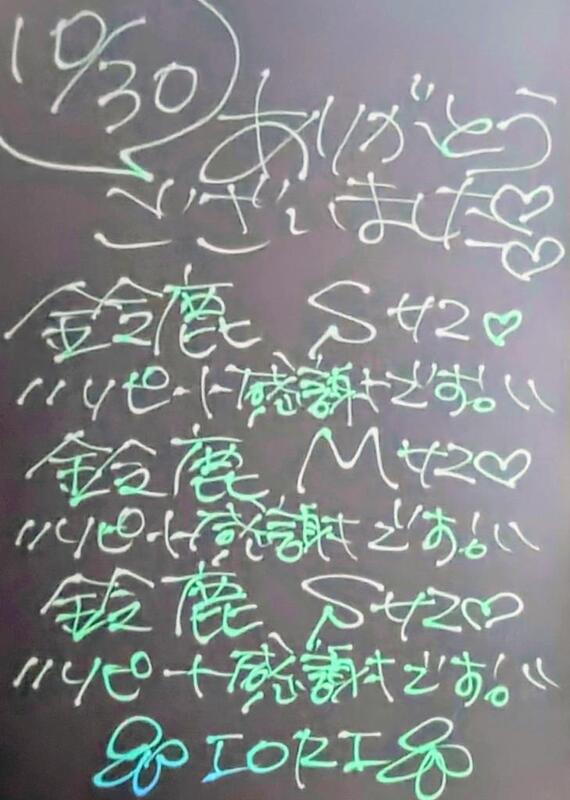 10/30
ありがとう
ございました♡♡
鈴鹿 Sサン♡
"リピート感謝です。"
鈴鹿 Mサン♡
"リピート感謝です。"
鈴鹿 Sサン♡
"リピート感謝です。"
IORI